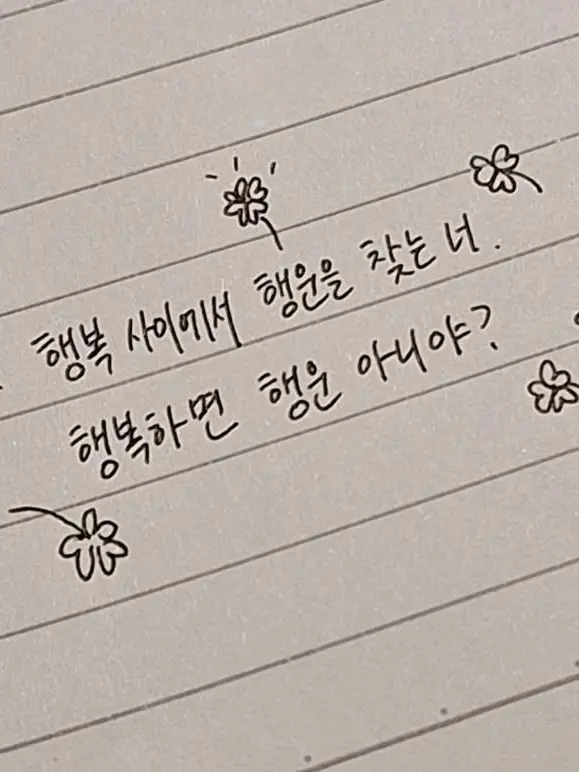 행복 사이에서 행운을 찾는 너.
행복하면 행운 아니야?